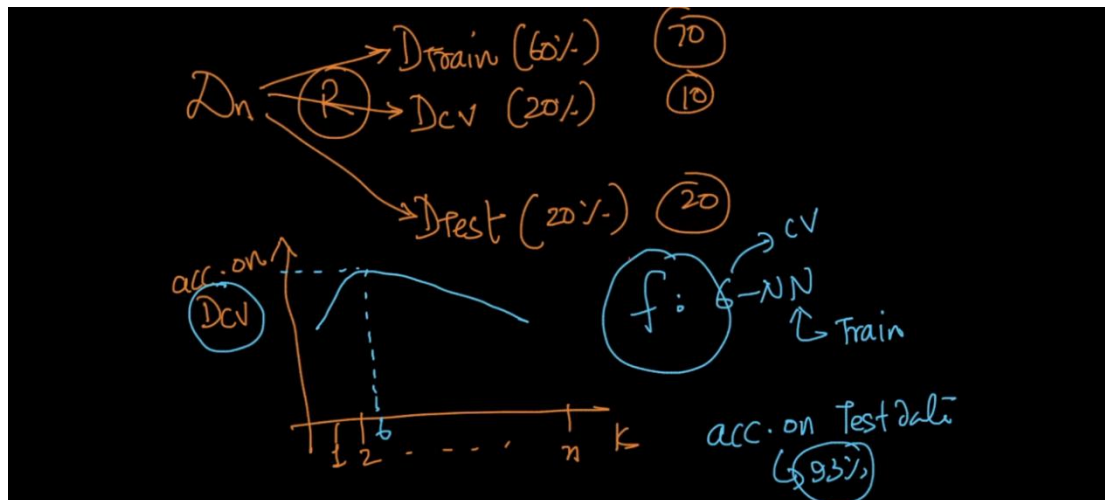 Dn
R
Dtrain (60%) 70
Dcv (20%) 10
Dtest (20%) 20
acc. on
Dcv
1 2 6 - - - - . n K
f: 6-NN
CV
Train
acc. on Test data
93%